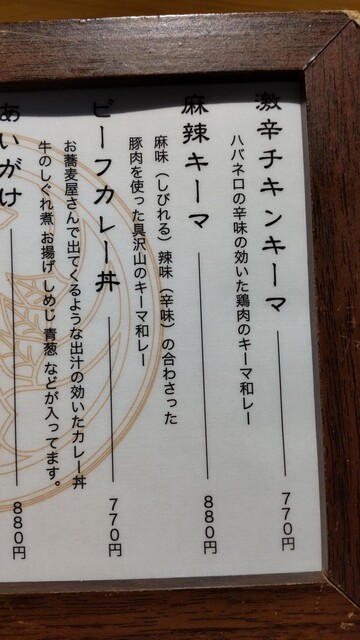 激辛チキンキーマ 770円
ハバネロの辛味の効いた鶏肉のキーマ和レー
麻辣キーマ 880円
麻味（しびれる）辣味（辛味）の合わさった
豚肉を使った具沢山のキーマ和レー
ビーフカレー丼 770円
お蕎麦屋さんで出てくるような出汁の効いたカレー丼
牛のしぐれ煮 お揚げ しめじ 青葱 などが入ってます。
あいがけ 880円